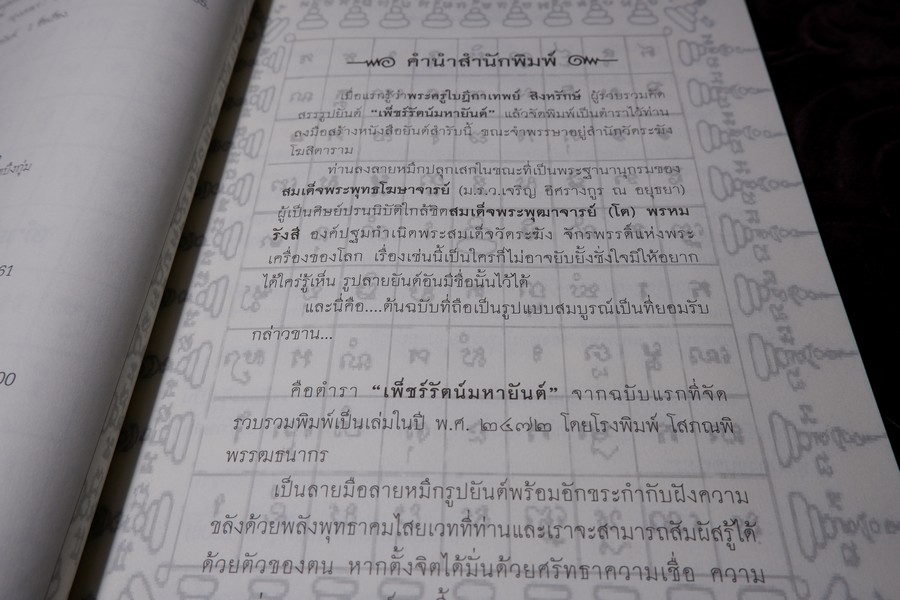 คำนำสำนักพิมพ์
เมื่อแรกรู้ว่าพระครูใบฎีกาเทพย์ สิงหรักษ์ ผู้รวบรวมคัด
สรรรูปยันต์ “เพ็ชร์รัตน์มหายันต์” แล้วจัดพิมพ์เป็นตำราไว้ท่าน
ลงมือสร้างหนังสือยันต์สำรับนี้ ขณะจำพรรษาอยู่สำนักวัดระฆัง
โฆสิตาราม
ท่านลงลายหมึกปลุกเสกในขณะที่เป็นพระฐานานุกรมของ
สมเด็จพระพุทธโฆษาจารย์ (ม.ร.ว.เจริญ อิศรางกูร ณ อยุธยา)
ผู้เป็นศิษย์ปรนนิบัติใกล้ชิดสมเด็จพระพุฒาจารย์ (โต) พรหม
รังสี องค์ปฐมกำเนิดพระสมเด็จวัดระฆัง จักรพรรดิ์แห่งพระ
เครื่องของโลก เรื่องเช่นนี้เป็นใครก็ไม่อาจยับยั้งชั่งใจมิให้อยาก
ได้ใคร่รู้เห็น รูปลายยันต์อันมีชื่อนั้นไว้ได้
และนี่คือ....ต้นฉบับที่ถือเป็นรูปแบบสมบูรณ์เป็นที่ยอมรับ
กล่าวขาน...
คือตำรา “เพ็ชร์รัตน์มหายันต์” จากฉบับแรกที่จัด
รวบรวมพิมพ์เป็นเล่มในปี พ.ศ. ๒๔๗๒ โดยโรงพิมพ์ โสภณพิ
พรรฒธนากร
เป็นลายมือลายหมึกรูปยันต์พร้อมอักขระกำกับฝังความ
ขลังด้วยพลังพุทธาคมไสยเวทที่ท่านและเราจะสามารถสัมผัสรู้ได้
ด้วยตัวของตน หากตั้งจิตได้มั่นด้วยศรัทธาความเชื่อ ความ